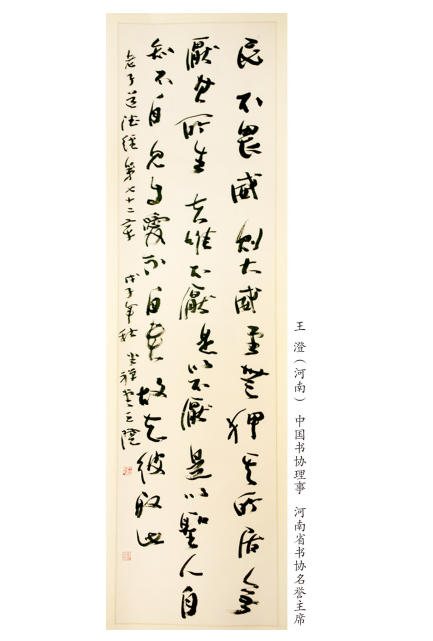 民不畏威则大威至無狎其所居無
厭其所生夫唯不厭是以不厭是以聖人自
知不自見自愛不自貴故去彼取此
老子道德經第七十二章 戊子年秋 王澄
王澄（河南） 中国书协理事 河南省书协名誉主席